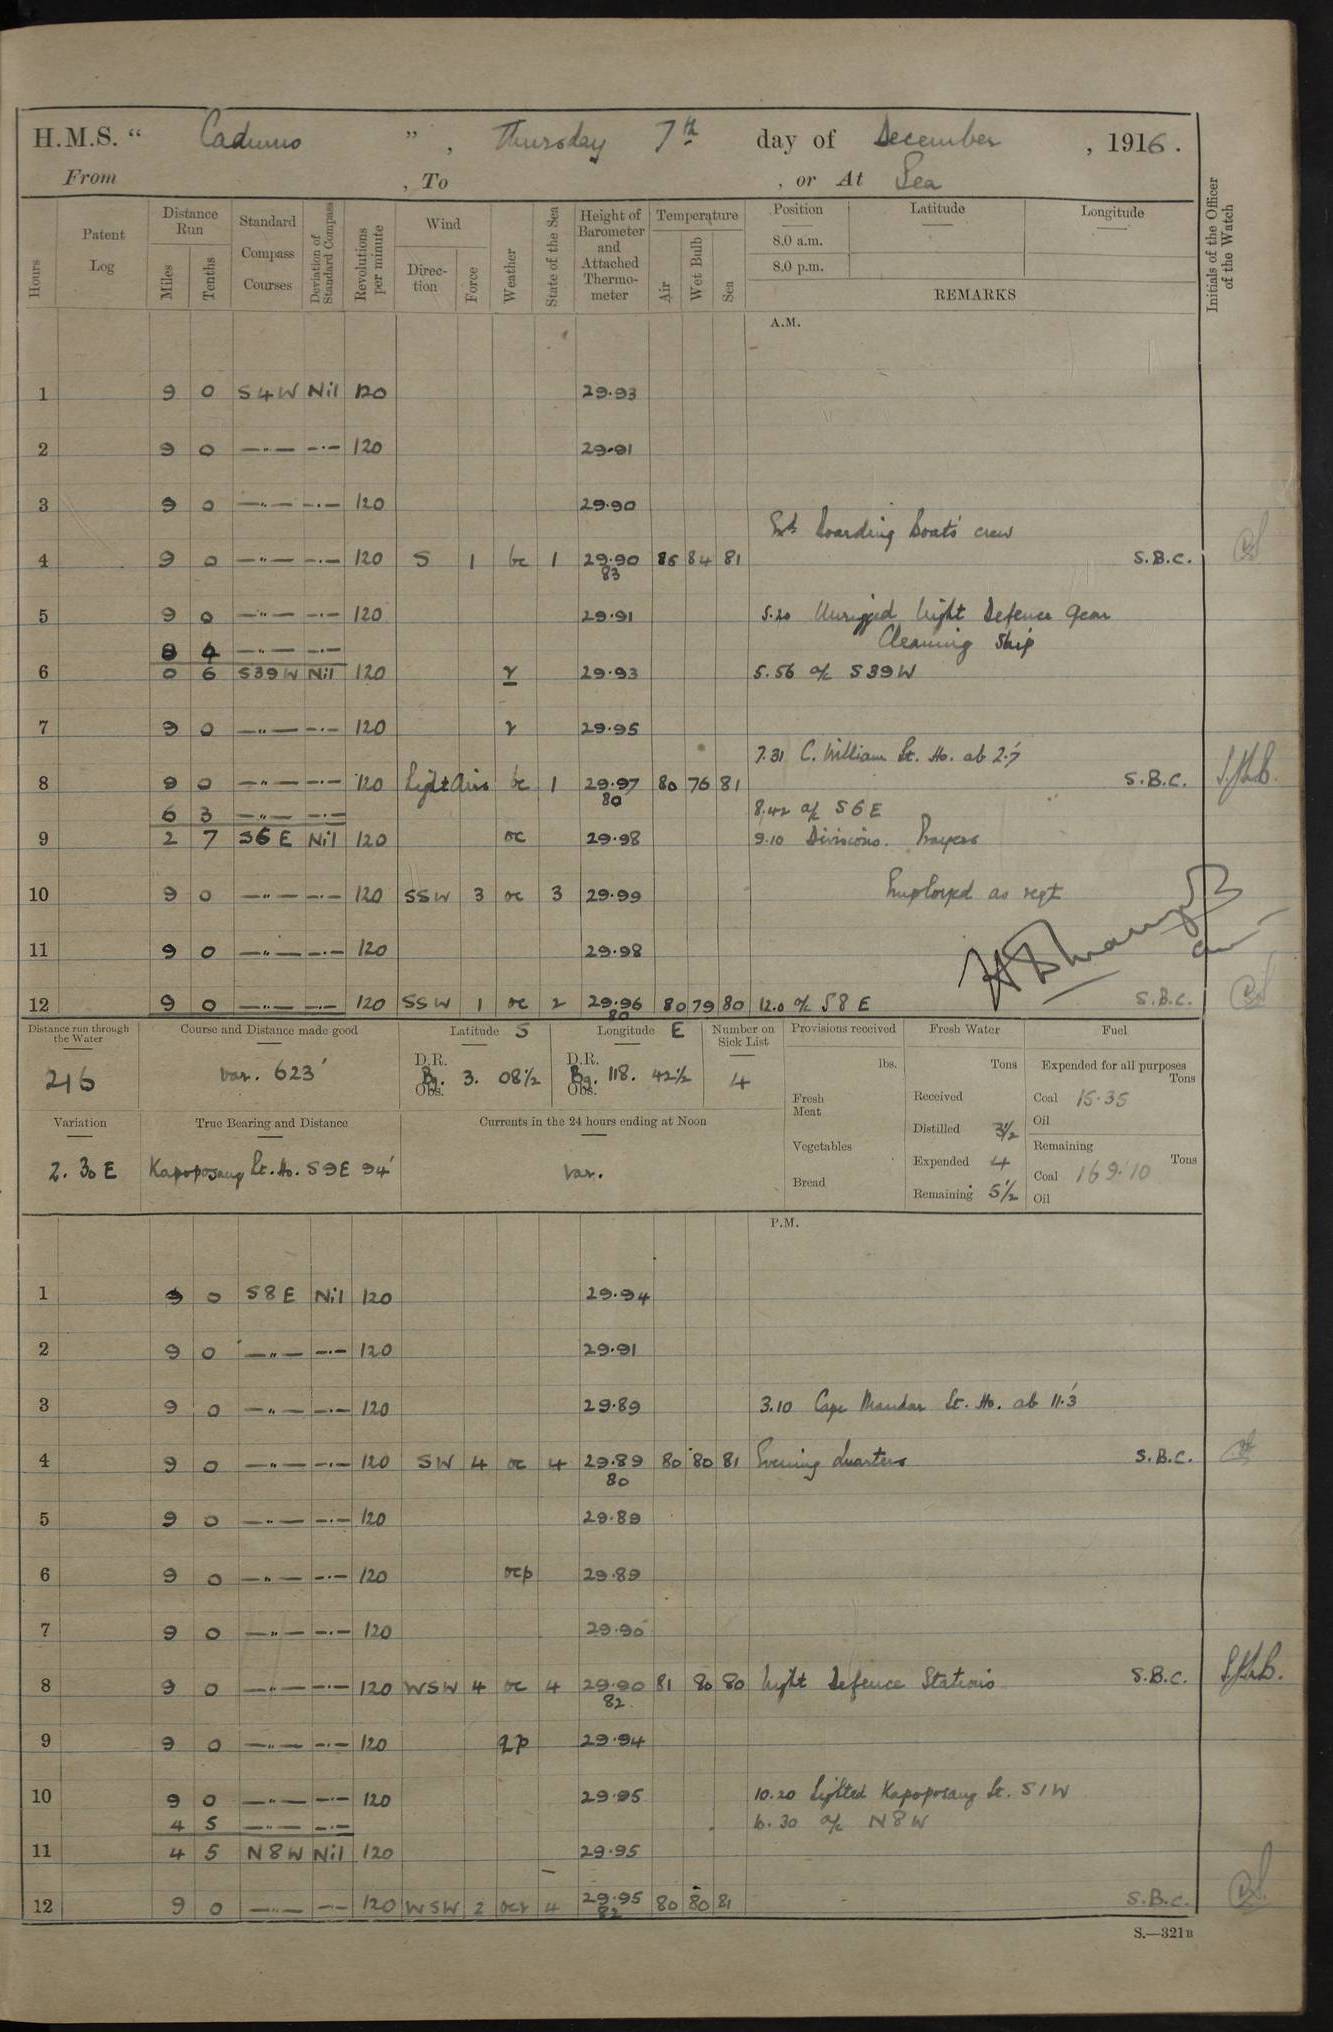 H.M.S. “ Cadmus ”, Thursday 7th day of December, 1916.
From , To , or At Sea
Hours Patent Log Distance Run Miles Tenths Standard Compass Courses Deviation of Standard Compass Revolutions per minute Wind Direc-tion Force Weather State of the Sea Height of Barometer and Attached Thermo-meter Temperature Air Wet Bulb Sea Position Latitude Longitude Initials of the Officer of the Watch
8.0 a.m.
8.0 p.m.
REMARKS
A.M.
1 9 0 S4W Nil 120 29.93
2 9 0 —"— —·— 120 29.91
3 9 0 —"— —·— 120 29.90
Ext boarding boats crew
4 9 0 —"— —·— 120 S 1 bc 1 29.90 83 86 84 81 S.B.C.
5 9 0 —"— —·— 120 29.91 5.20 Unrigged Night Defence Gear
8 4 —"— —·— Cleaning Ship
6 0 6 S39W Nil 120 r 29.93 5.56 a/c S39W
7 9 0 —"— —·— 120 r 29.95
7.31 C. William Lt. Ho. ab 2.7'
8 9 0 —"— —·— 120 Light Airs bc 1 29.97 80 80 76 81 S.B.C.
6 3 —"— —·— 8.42 a/c S6E
9 2 7 S6E Nil 120 oc 29.98 9.10 Divisions. Prayers
10 9 0 —"— —·— 120 SSW 3 oc 3 29.99 Employed as reqt
11 9 0 —"— —·— 120 29.98
12 9 0 —"— —·— 120 SSW 1 oc 2 29.96 80 80 79 80 12.0 a/c S8E S.B.C.
Distance run through the Water Course and Distance made good Latitude S Longitude E Number on Sick List Provisions received Fresh Water Fuel
216 var. 623' D.R. Bg. Obs. 3. 08½ D.R. Bg. Obs. 118. 42½ 4 lbs. Tons Expended for all purposes Tons
Fresh Meat Received Coal 15.35
Oil
Variation True Bearing and Distance Currents in the 24 hours ending at Noon Distilled 3½ Remaining
2.30 E Kapoposang Lt. Ho. S9E 94' var. Vegetables Expended 4 Tons
Bread Remaining 5½ Coal 169.10
Oil
P.M.
1 9 0 S8E Nil 120 29.94
2 9 0 —"— —·— 120 29.91
3 9 0 —"— —·— 120 29.89 3.10 Cape Mandar Lt. Ho. ab 11.3'
4 9 0 —"— —·— 120 SW 4 oc 4 29.89 80 80 80 81 Evening Quarters S.B.C.
5 9 0 —"— —·— 120 29.89
6 9 0 —"— —·— 120 ocp 29.89
7 9 0 —"— —·— 120 29.90
8 9 0 —"— —·— 120 WSW 4 oc 4 29.90 82 81 80 80 Night Defence Stations S.B.C.
9 9 0 —"— —·— 120 qp 29.94
10 9 0 —"— —·— 120 29.95 10.20 Sighted Kapoposang Lt. S1W
4 5 —"— —·— 10.30 a/c N8W
11 4 5 N8W Nil 120 29.95
12 9 0 —"— —·— 120 WSW 2 ocr 4 29.95 82 80 80 81 S.B.C.
S.—321B